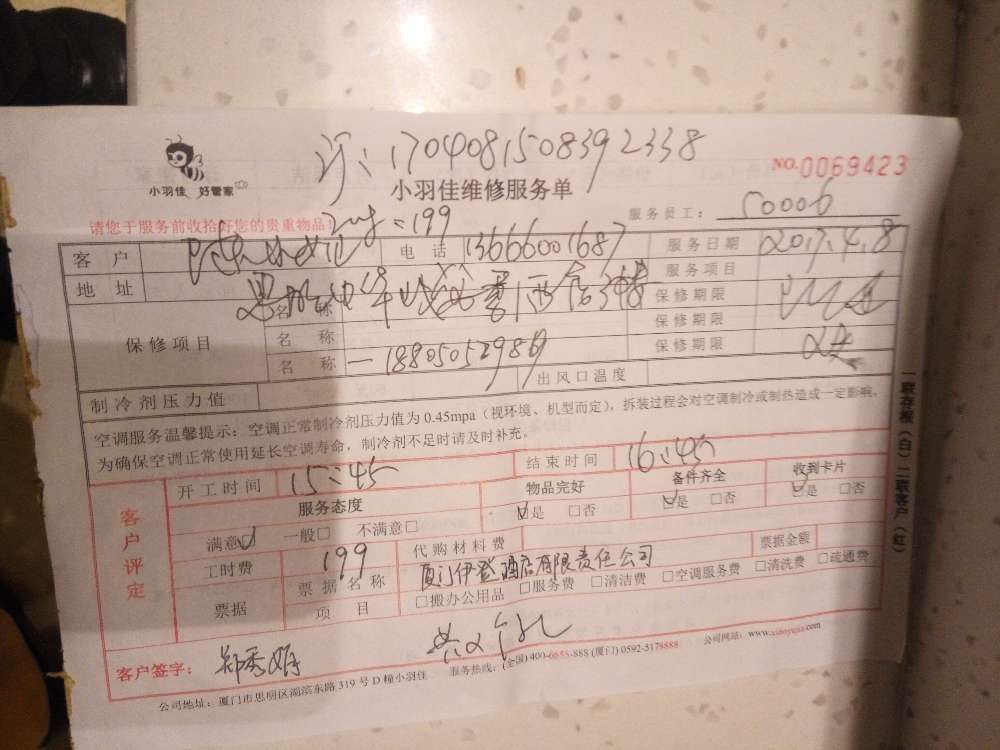 订:1704081508392338
小羽佳 好管家
小羽佳维修服务单
NO.0069423
请您于服务前收拾好您的贵重物品! =199
服务员工: 50006
客户 电话 13666001687 服务日期 2017.4.8
地址 服务项目
保修项目 名称 保修期限
名称 保修期限
名称 18805052989 保修期限
制冷剂压力值 出风口温度
空调服务温馨提示:空调正常制冷剂压力值为 0.45mpa(视环境、机型而定),拆装过程会对空调制冷或制热造成一定影响。
为确保空调正常使用延长空调寿命,制冷剂不足时请及时补充。
客户评定 开工时间 15:45 结束时间 16:45
服务态度 物品完好 备件齐全 收到卡片
满意☑ 一般□ 不满意□ ☑是 □否 ☑是 □否 ☑是 □否
工时费 199 代购材料费
票据 票据名称 厦门伊登酒店有限责任公司 票据金额
项目 □搬办公用品 □服务费 □清洁费 □空调服务费 □清洗费 □疏通费
客户签字: 郑秀娟
服务热线:(全国) 400-6655-888 (厦门) 0592-5178888 公司网站:www.xiaoyujia.com
公司地址:厦门市思明区湖滨东路 319 号 D 幢小羽佳
一联存根(白)二联客户(红)